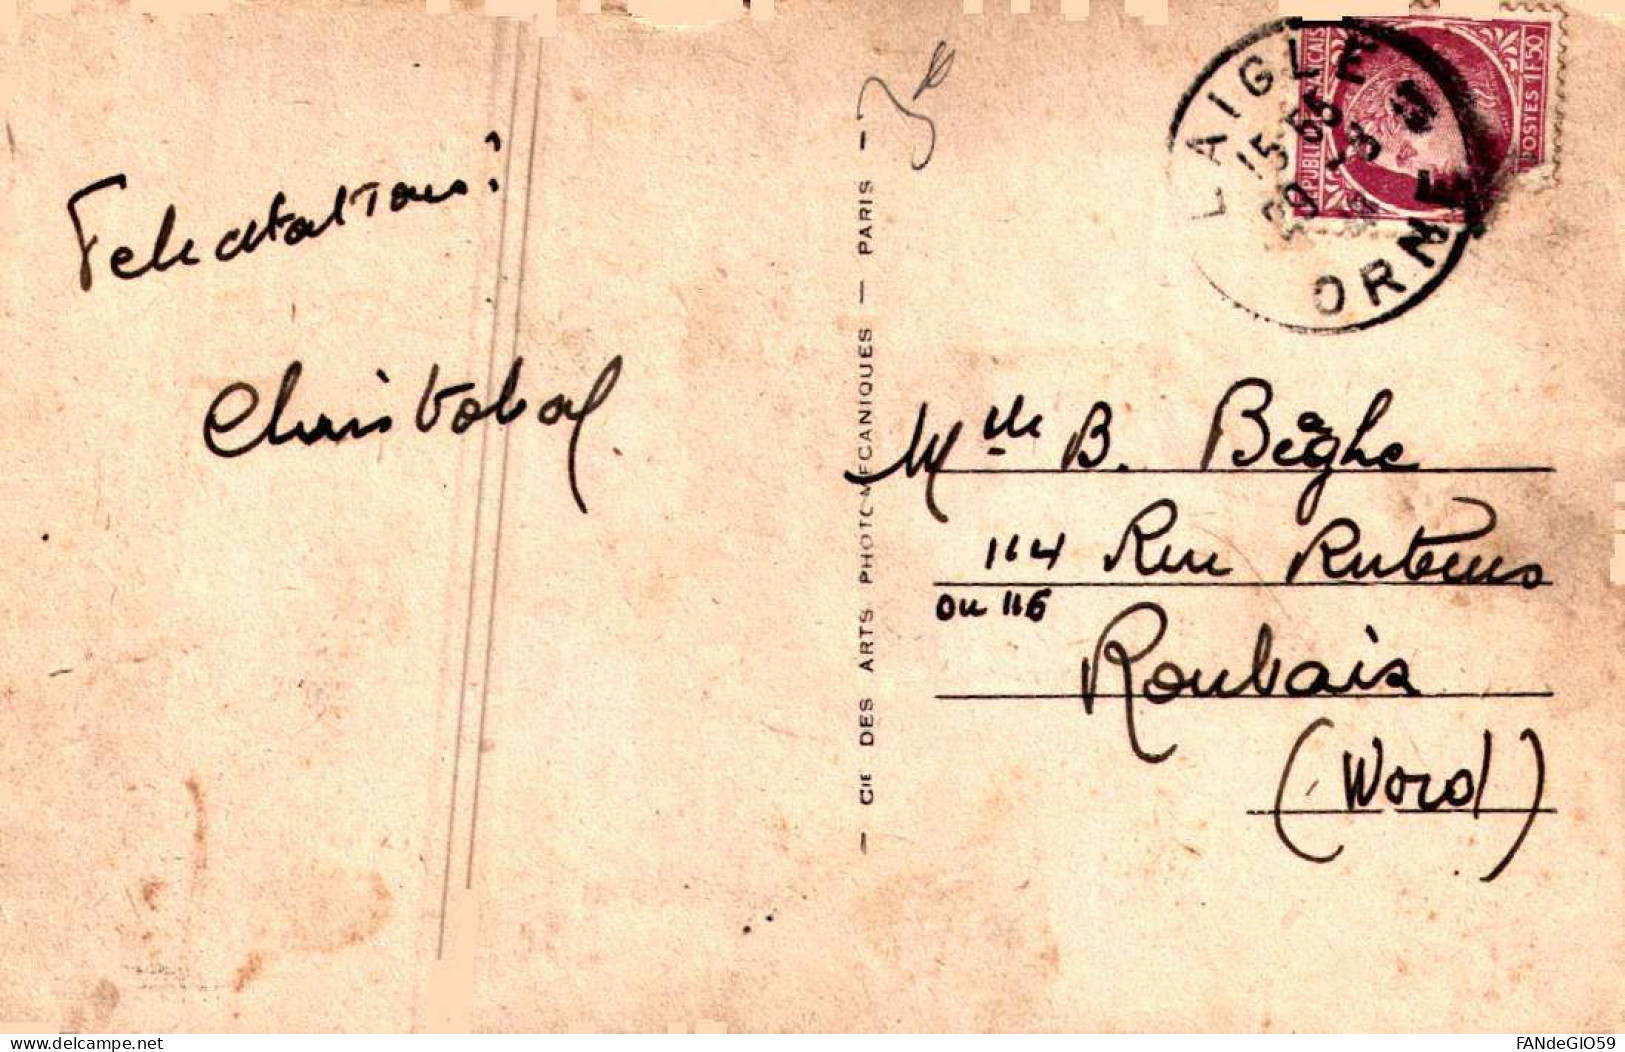 Felicitations!
Christobal
3
LAIGLE
15 55
ORNE
REPUBLIQUE FRANÇAISE
POSTES 1F50
— CIE DES ARTS PHOTOMECANIQUES — PARIS —
Mlle B. Bèghe
114 Rue Rubens
ou 116
Roubaix
(Nord)
www.delcampe.net
FANdeGIO59